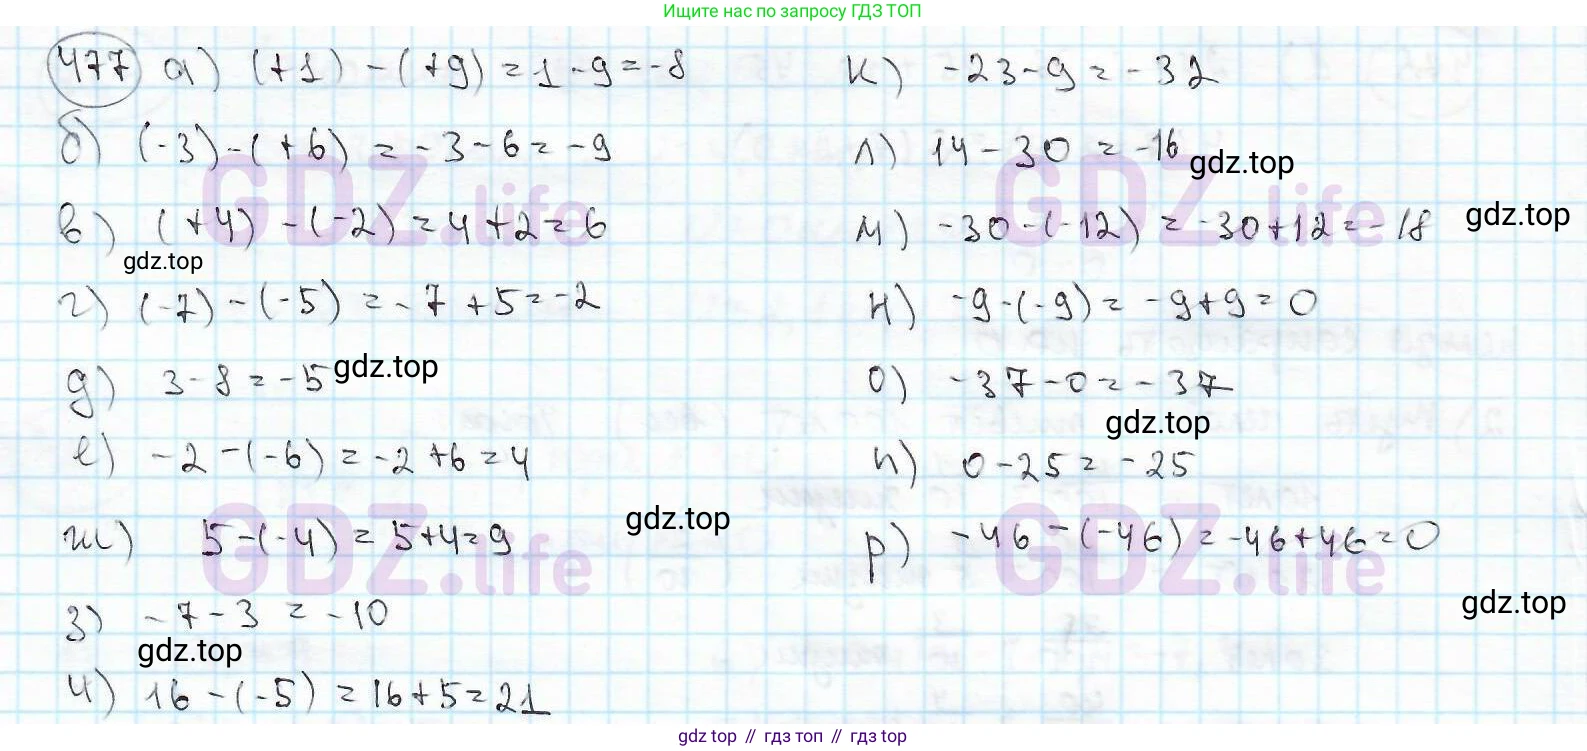 Ищите нас по запросу ГДЗ ТОП
477 а) (+1) - (+9) = 1 - 9 = -8
б) (-3) - (+6) = -3 - 6 = -9
в) (+4) - (-2) = 4 + 2 = 6
gdz.top
г) (-7) - (-5) = -7 + 5 = -2
д) 3 - 8 = -5 gdz.top
е) -2 - (-6) = -2 + 6 = 4
ж) 5 - (-4) = 5 + 4 = 9 gdz.top
з) -7 - 3 = -10
gdz.top
и) 16 - (-5) = 16 + 5 = 21
к) -23 - 9 = -32
л) 14 - 30 = -16 gdz.top
м) -30 - (-12) = -30 + 12 = -18 gdz.top
н) -9 - (-9) = -9 + 9 = 0
о) -37 - 0 = -37
gdz.top
п) 0 - 25 = -25
р) -46 - (-46) = -46 + 46 = 0
gdz.top
GDZ.life
GDZ.life
GDZ.life
GDZ.life
gdz top // гдз топ // гдз top